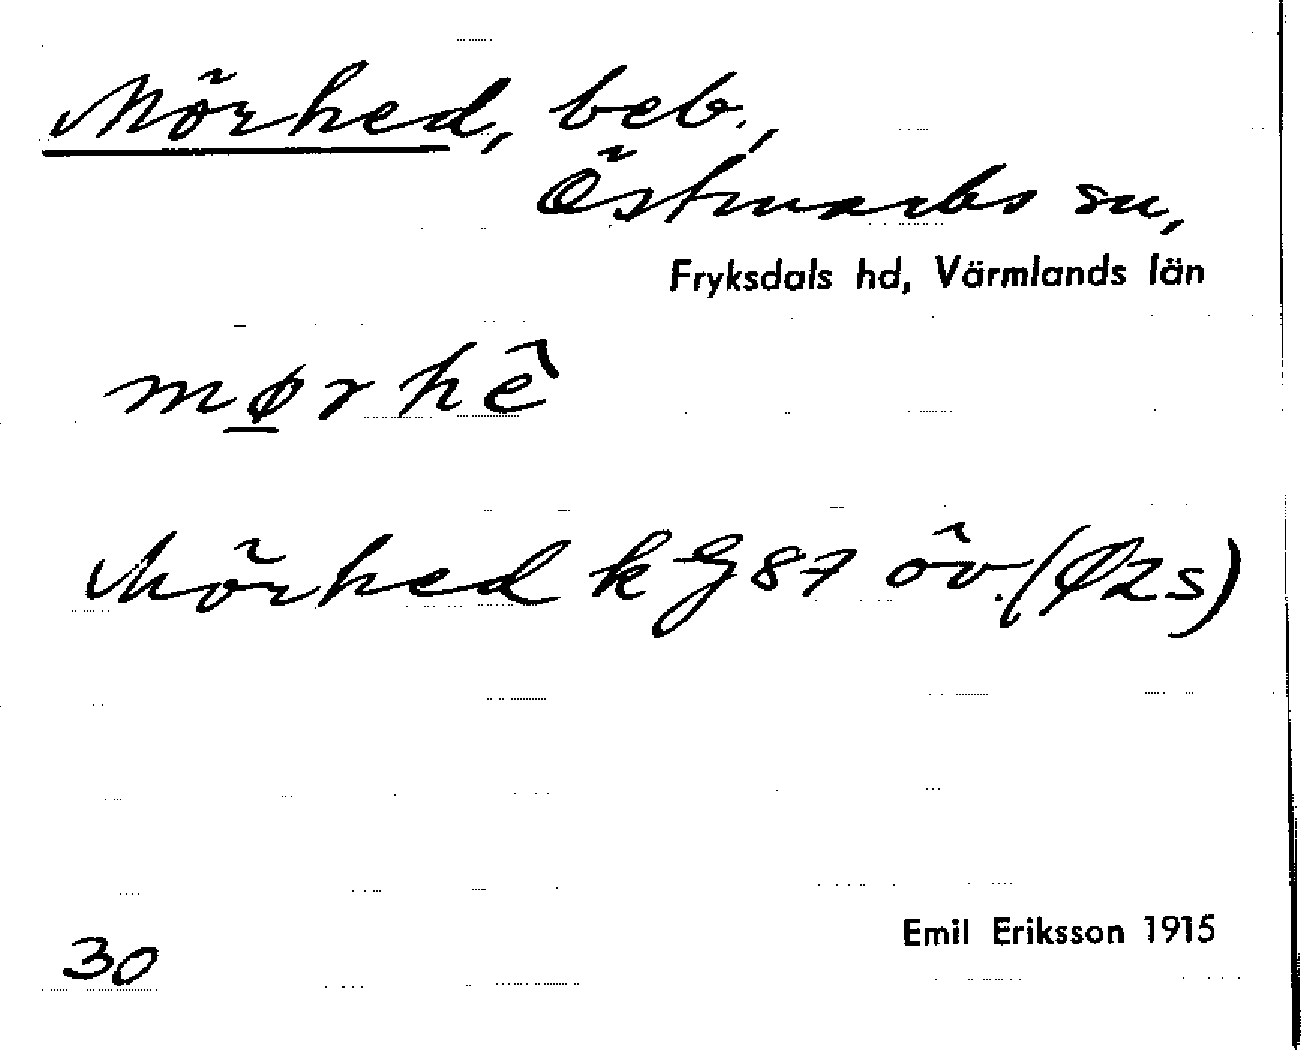 Mörhed, beb.,
Östmarks sn,
Fryksdals hd, Värmlands län
mørhè
Mörhed k G 87 öv. (Ø2s)
Emil Eriksson 1915
30